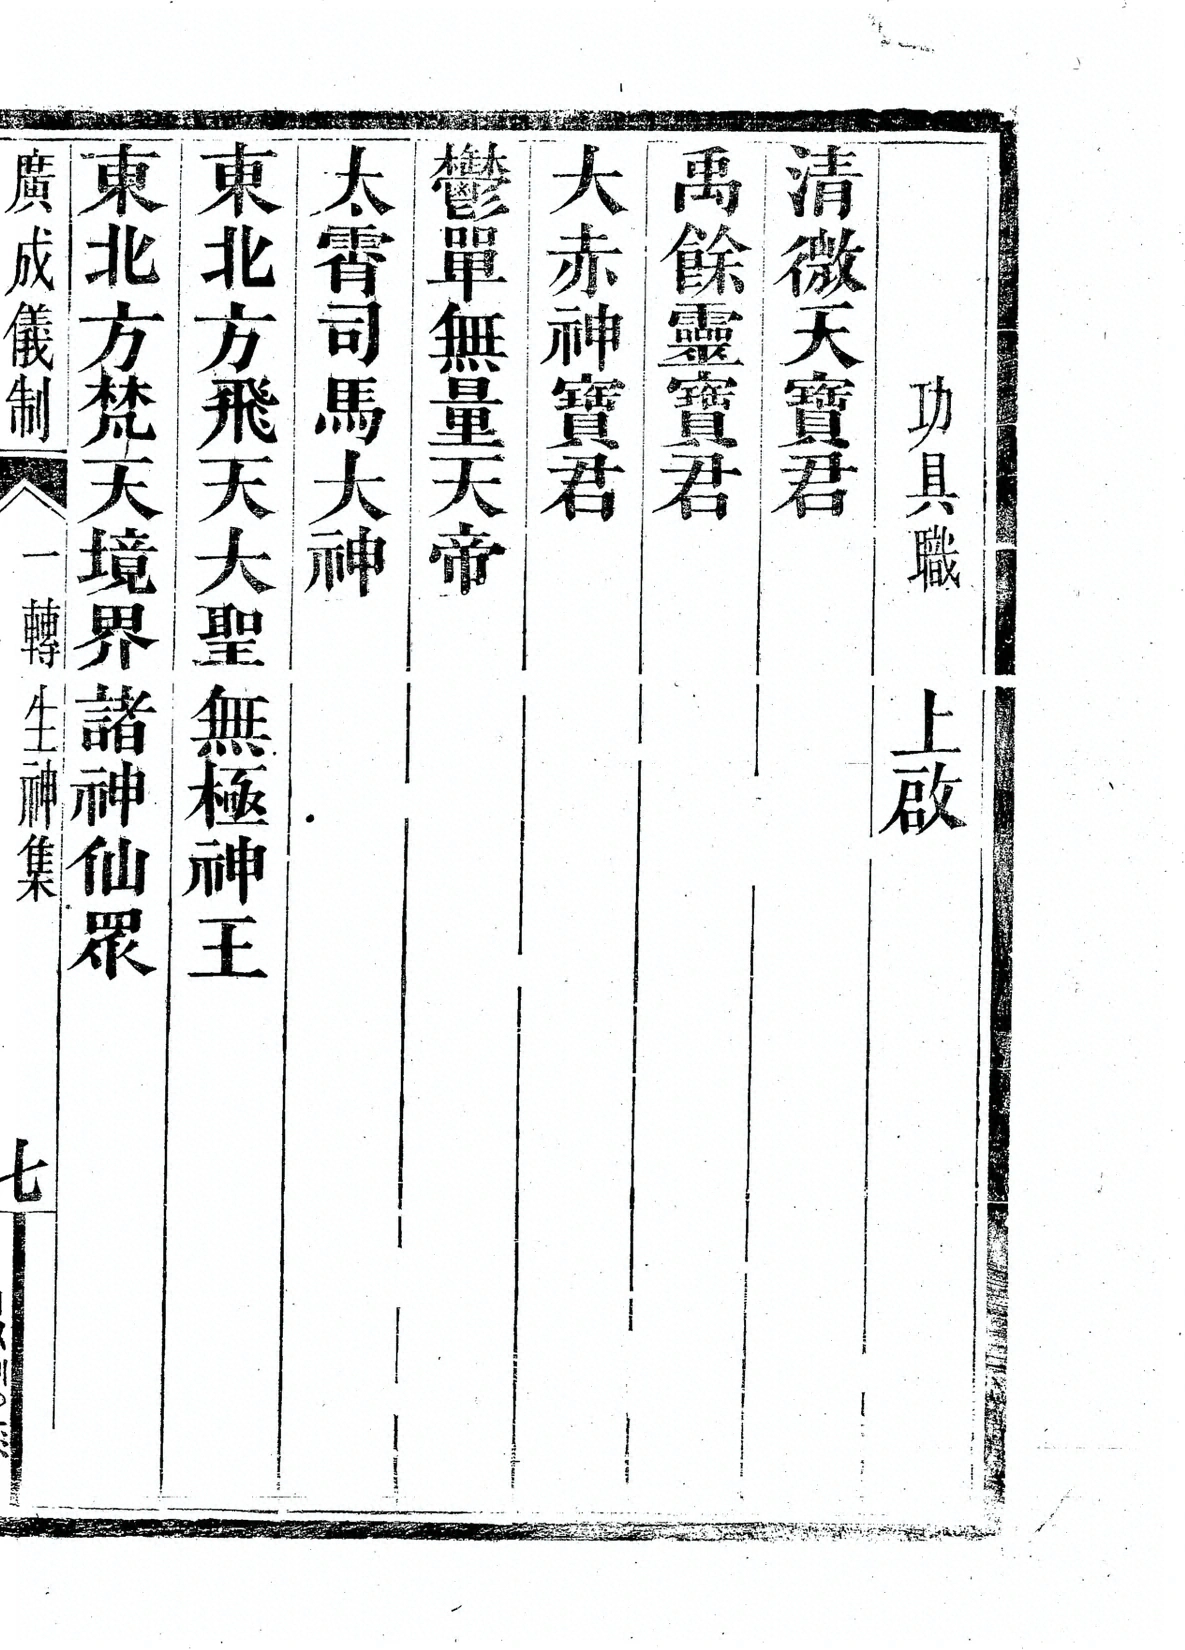 功具職　上啟
清微天寶君
禹餘靈寶君
大赤神寶君
鬱單無量天帝
太霄司馬大神
東北方飛天大聖無極神王
東北方梵天境界諸神仙眾
廣成儀制　一轉生神集　七